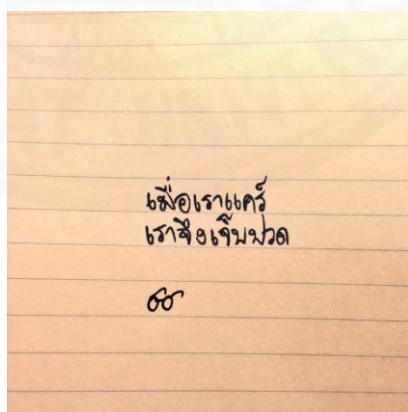 เมื่อเราแคร์
เราจึงเจ็บปวด